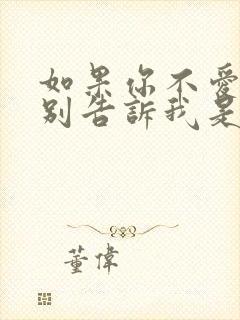 如果你不愛
別告訴我是
董偉